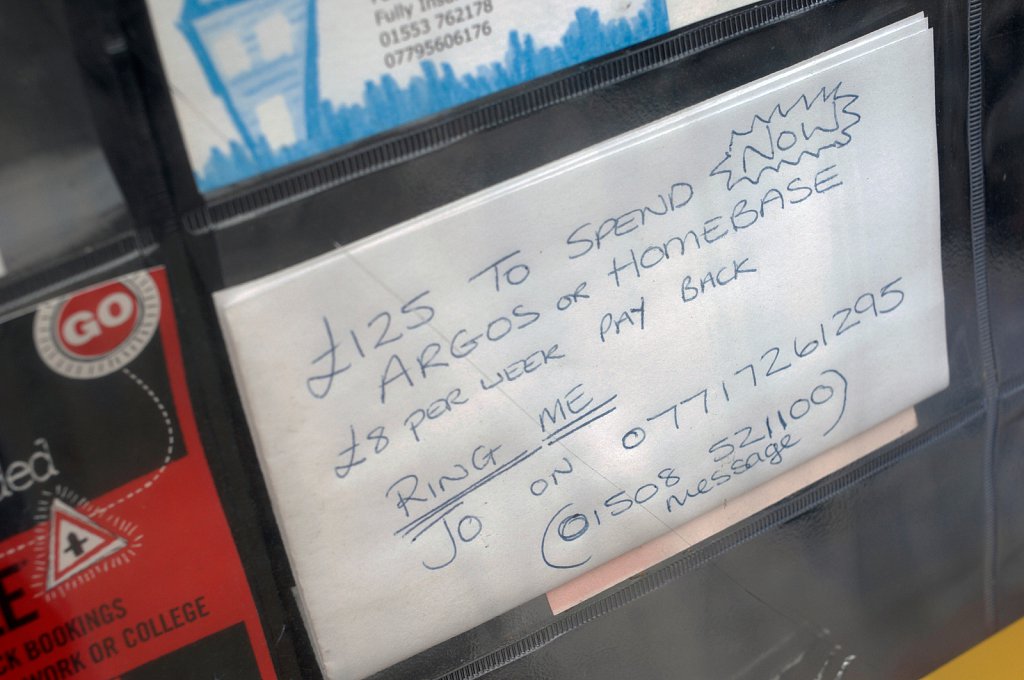 Fully
01553 762178
07795606176
£125 TO SPEND NOW
ARGOS OR HOMEBASE
£8 PER WEEK PAY BACK
RING ME
JO ON 07717261295
(01508 521100)
message
GO
BOOKINGS
WORK OR COLLEGE